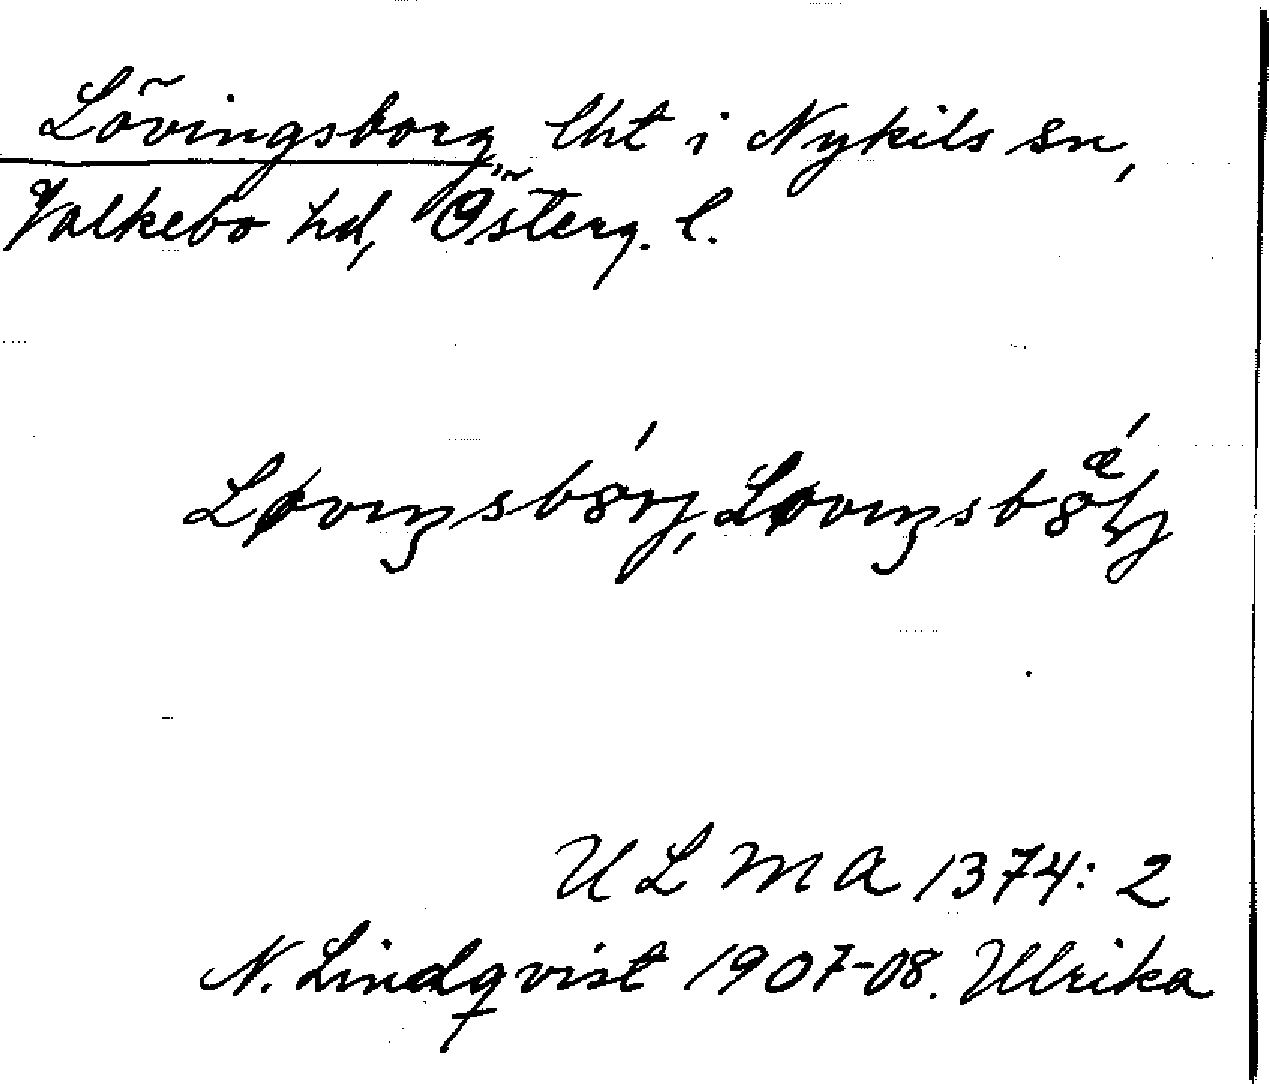 Lövingsborg, lht i Nykils sn,
Valkebo hd, Österg. l.
ULMA 1374: 2
N. Lindqvist 1907-08. Ulrika